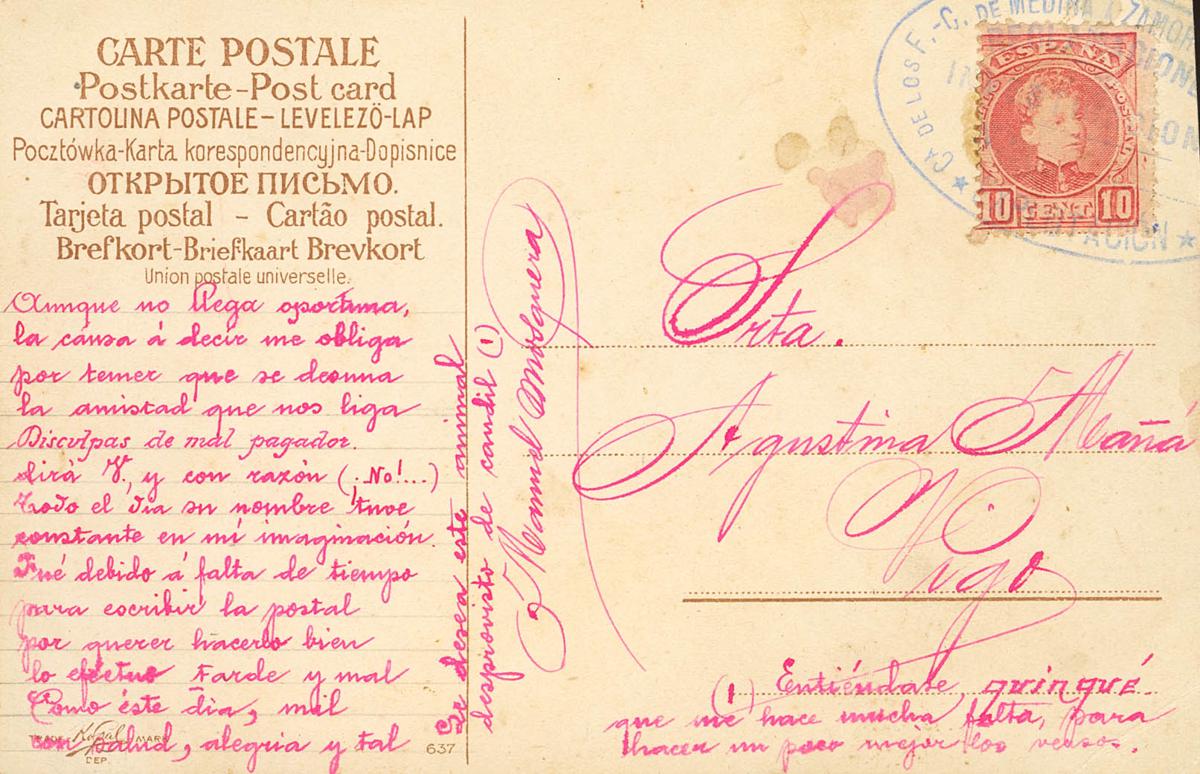 CARTE POSTALE
Postkarte-Post card
CARTOLINA POSTALE – LEVELEZÖ-LAP
Pocztówka-Karta korespondencyjna-Dopisnice
ОТКРЫТОЕ ПИСЬМО.
Tarjeta postal – Cartão postal.
Brefkort-Briefkaart Brevkort
Union postale universelle.
Aunque no llega oportuna,
la causa á decir me obliga
por temer que se desuna
la amistad que nos liga
Disculpas de mal pagador.
dirá V., y con razón (¡No!...)
Todo el día su nombre tuve
constante en mi imaginación.
Fué debido á falta de tiempo
para escribir la postal
por querer hacerlo bien
lo efectuo tarde y mal
Como éste día, mil
con salud, alegria y tal
TRADE MARK
DEP.
637
Se desea este animal
desprovisto de candil (1)
Manuel Mosquera
CA DE LOS F.-C. DE MEDINA Á ZAMOR
ESPAÑA
10 CENT. 10
Srta.
Agustina Mañá
Vigo
(1) Entiéndase, quinqué
que me hace mucha falta, para
hacer un poco mejor los versos.